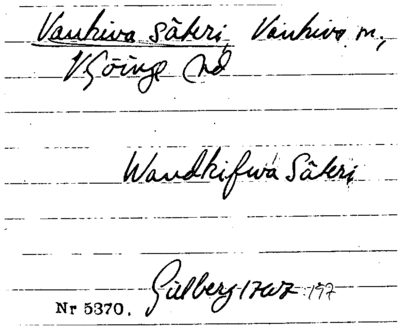 Vankiva Säteri, Vankiva sn,
V Göinge hd
Wandkifwa Säteri,
Gillberg 1767 :197
Nr 5370.